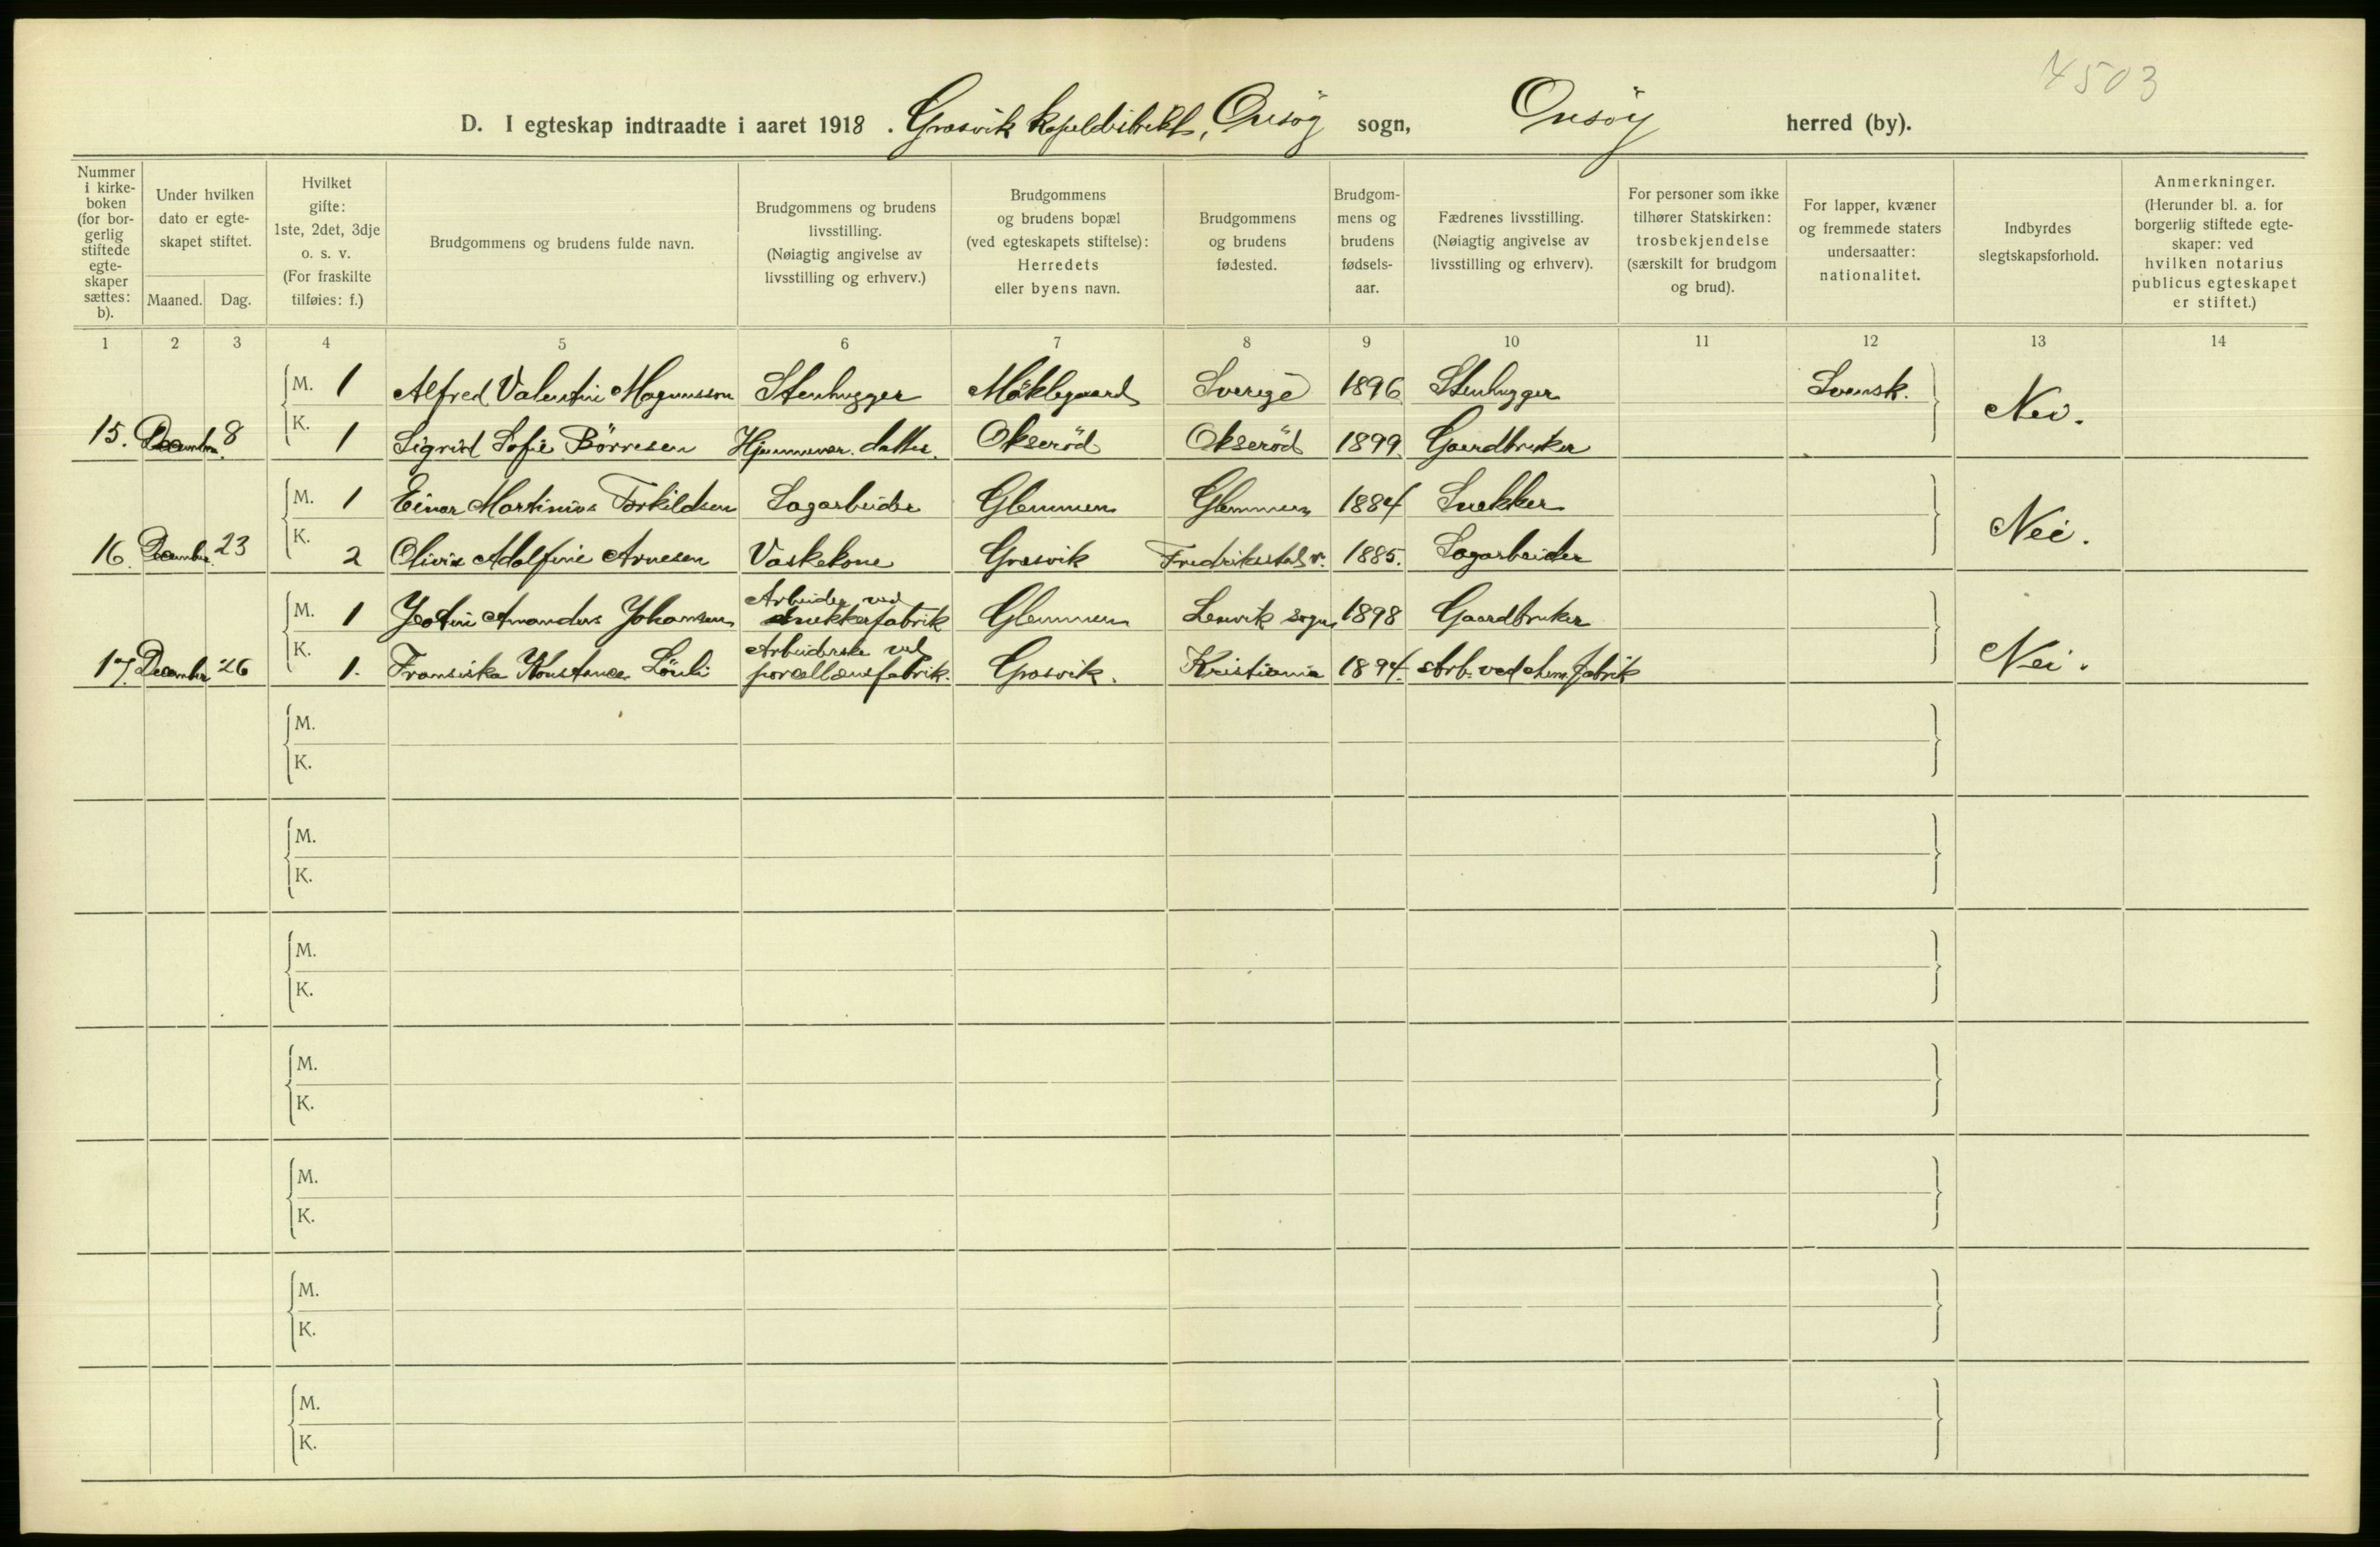 4503
D. I egteskap indtraadte i aaret 1918 . Græsvik kapeldistrikt, Onsöy sogn, Onsöy herred (by).
Nummer i kirke-boken (for bor-gerlig stiftede egte-skaper sættes: b).
Under hvilken dato er egte-skapet stiftet.
Maaned. Dag.
Hvilket gifte: 1ste, 2det, 3dje o. s. v. (For fraskilte tilføies: f.)
Brudgommens og brudens fulde navn.
Brudgommens og brudens livsstilling. (Nøiagtig angivelse av livsstilling og erhverv.)
Brudgommens og brudens bopæl (ved egteskapets stiftelse): Herredets eller byens navn.
Brudgommens og brudens fødested.
Brudgom-mens og brudens fødsels-aar.
Fædrenes livsstilling. (Nøiagtig angivelse av livsstilling og erhverv).
For personer som ikke tilhører Statskirken: trosbekjendelse (særskilt for brudgom og brud).
For lapper, kvæner og fremmede staters undersaatter: nationalitet.
Indbyrdes slegtskapsforhold.
Anmerkninger. (Herunder bl. a. for borgerlig stiftede egte-skaper: ved hvilken notarius publicus egteskapet er stiftet.)
1 2 3 4 5 6 7 8 9 10 11 12 13 14
M. 1 Alfred Valentin Magnusson Stenhugger Möklegaard Sverige 1896 Stenhugger Svensk. Nei.
15. December 8 K. 1 Sigrid Sofie Börresen Hjemmevær. datter. Okseröd Okseröd 1899. Gaardbruker
M. 1 Einar Martinius Torkildsen Sagarbeider Glemmen Glemmen 1884 Snekker Nei.
16. December 23 K. 2 Olivia Adolfine Arnesen Vaskekone Græsvik Fredrikstad v. 1885. Sagarbeider
M. 1 Jostin Amandus Johansen Arbeider ved snekkerfabrik Glemmen Lenvik sogn 1898 Gaardbruker Nei.
17. December 26 K. 1. Fransiska Konstance Lönli Arbeiderske ved porcellænsfabrik. Græsvik. Kristiania 1894. Arb. ved chem. fabrik
M.
K.
M.
K.
M.
K.
M.
K.
M.
K.
M.
K.
M.
K.